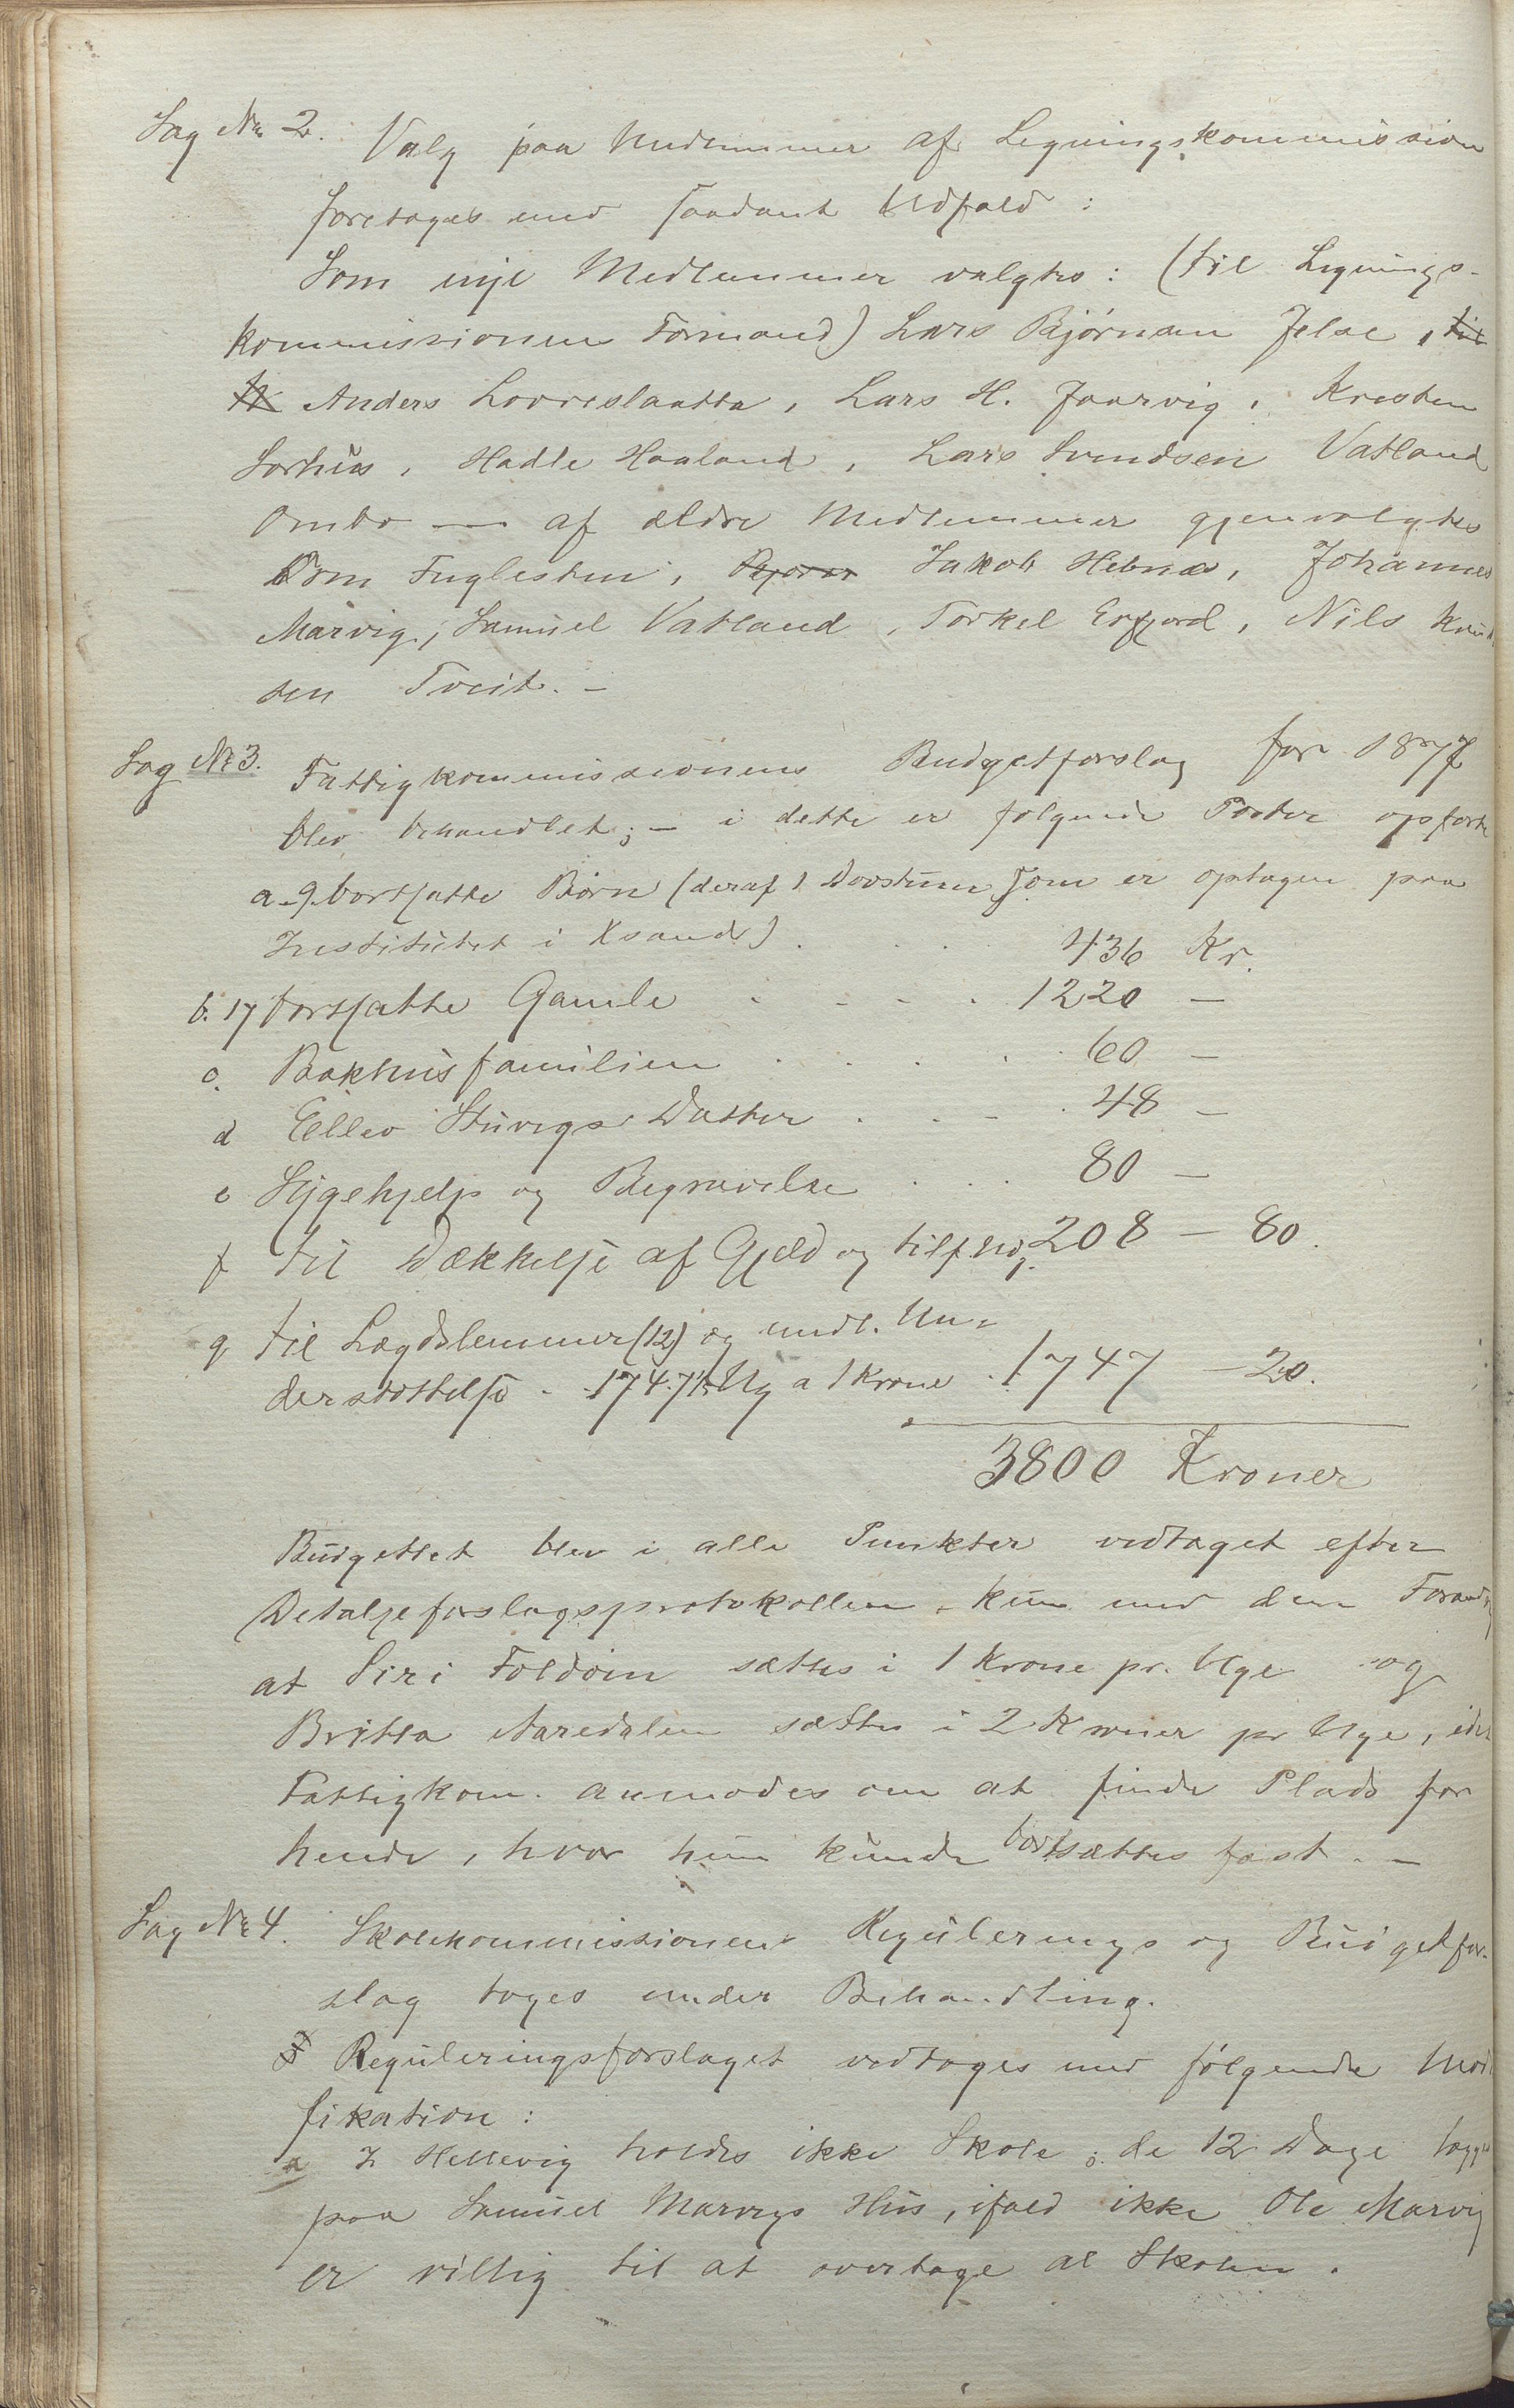 Sag No 2. Valg paa Medlemmer af Ligningskommission
foretages med saadant Udfald:
Som nye Medlemmer valgtes: (til Lignings-
kommissionens Formand) Lars Bjørnsen Jelse, til
Anders Lovreslaatta, Lars H. Jaarvig, Kresten
Sorhus, Hadle Haaland, Lars Svendsen Vatland
Ombo — af ældre Medlemmer gjenvalgtes
Orm Fuglesten, Jakob Hebnæs, Johannes
Marvig, Samuel Vatland, Torkel Erfjord, Nils Knud
sen Tveit. —
Sag No 3. Fattigkommissionens Budgetforslag for 1877
blev behandlet; — i dette er følgende Poster opført
a. 9 bortsatte Børn (deraf 1 Døvstum som er optagen paa
Institutet i Ksand) . . . 436 Kr.
b. 17 bortsatte Gamle . . . . 1220 —
c. Bakhusfamilien . . . . 60 —
d Ellev Stuvigs Datter . . . 48 —
e Sygehjelp og Begravelse . . . 80 —
f til Dækkelse af Gjeld og tilf. Udg. 208 — 80.
g til Lægdslemmer (12) og midl. Un-
derstøttelse . 1747 Ug a 1 Krone . 1747 — 20.
3800 Kroner
Budgettet blev i alle Punkter vedtaget efter
Detaljeforslagsprotokollen kun med den Forandr
at Siri Foldøen sættes i 1 Krone pr. Uge og
Britta Aaredalen sættes i 2 Kroner pr Uge, idet
Fattigkom. anmodes om at finde Plads for
hende, hvor hun kunde bortsættes fast. —
Sag No 4. Skolekommissionens Regulerings og Budgetfor-
slag toges under Behandling.
Reguleringsforslaget vedtages med følgende Modi
fikation:
a I Hellevig holdes ikke Skole; de 12 Dage lægges
paa Samuel Marvigs Hus, ifald ikke Ole Marvig
er villig til at overtage al Skolen.